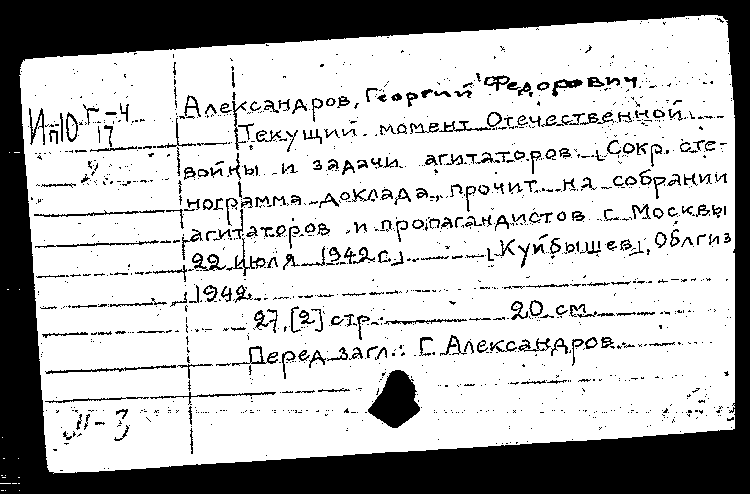 Ип10 Г-4
17
2
Александров, Георгий Федорович
Текущий момент Отечественной
войны и задачи агитаторов. [Сокр. сте-
нограмма доклада, прочит. на собрании
агитаторов и пропагандистов г. Москвы
22 июля 1942 г.] [Куйбышев], Облгиз
1942.
27, [2] стр. 20 см.
Перед загл.: Г. Александров.
II-3